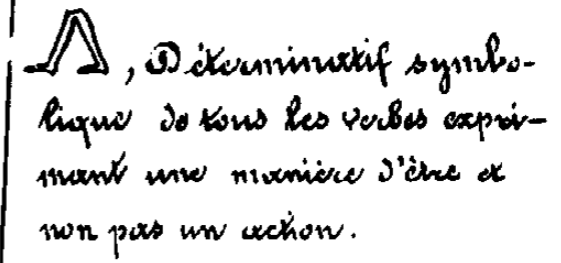 , Déterminatif symbo-
lique de tous les verbes expri-
mant une manière d'être et
non pas un action.